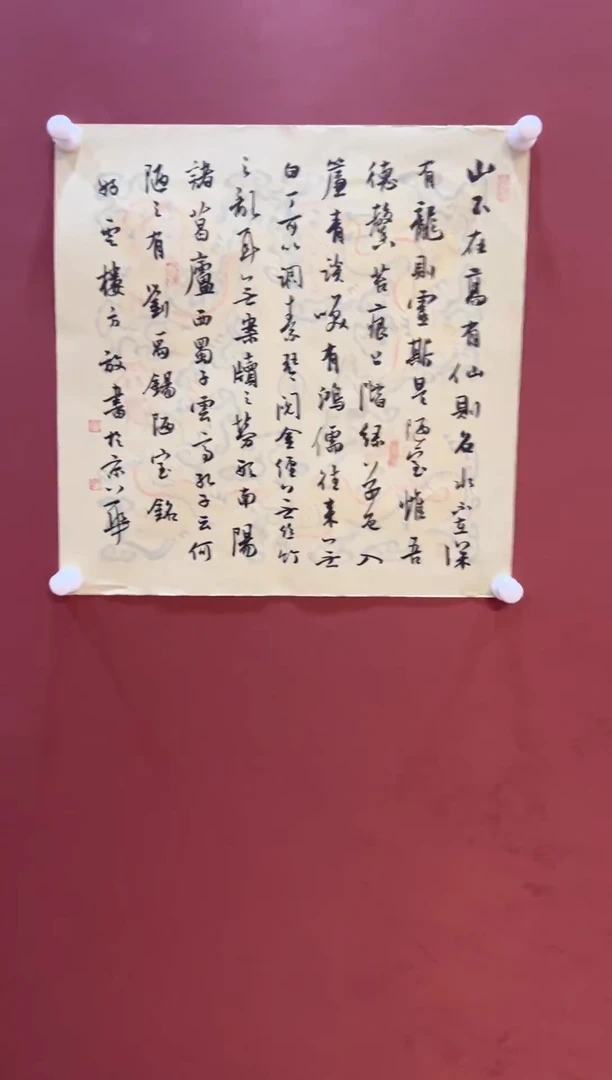 山不在高有仙则名水不在深
有龍则靈斯是陋室惟吾
德馨苔痕上階绿草色入
簾青谈咲有鴻儒往来无
白丁可以调素琴阅金经无丝竹
之乱耳无案牍之劳形南陽
諸葛廬西蜀子雲亭孔子云何
陋之有 劉禹錫陋室銘
樓方放書於京華